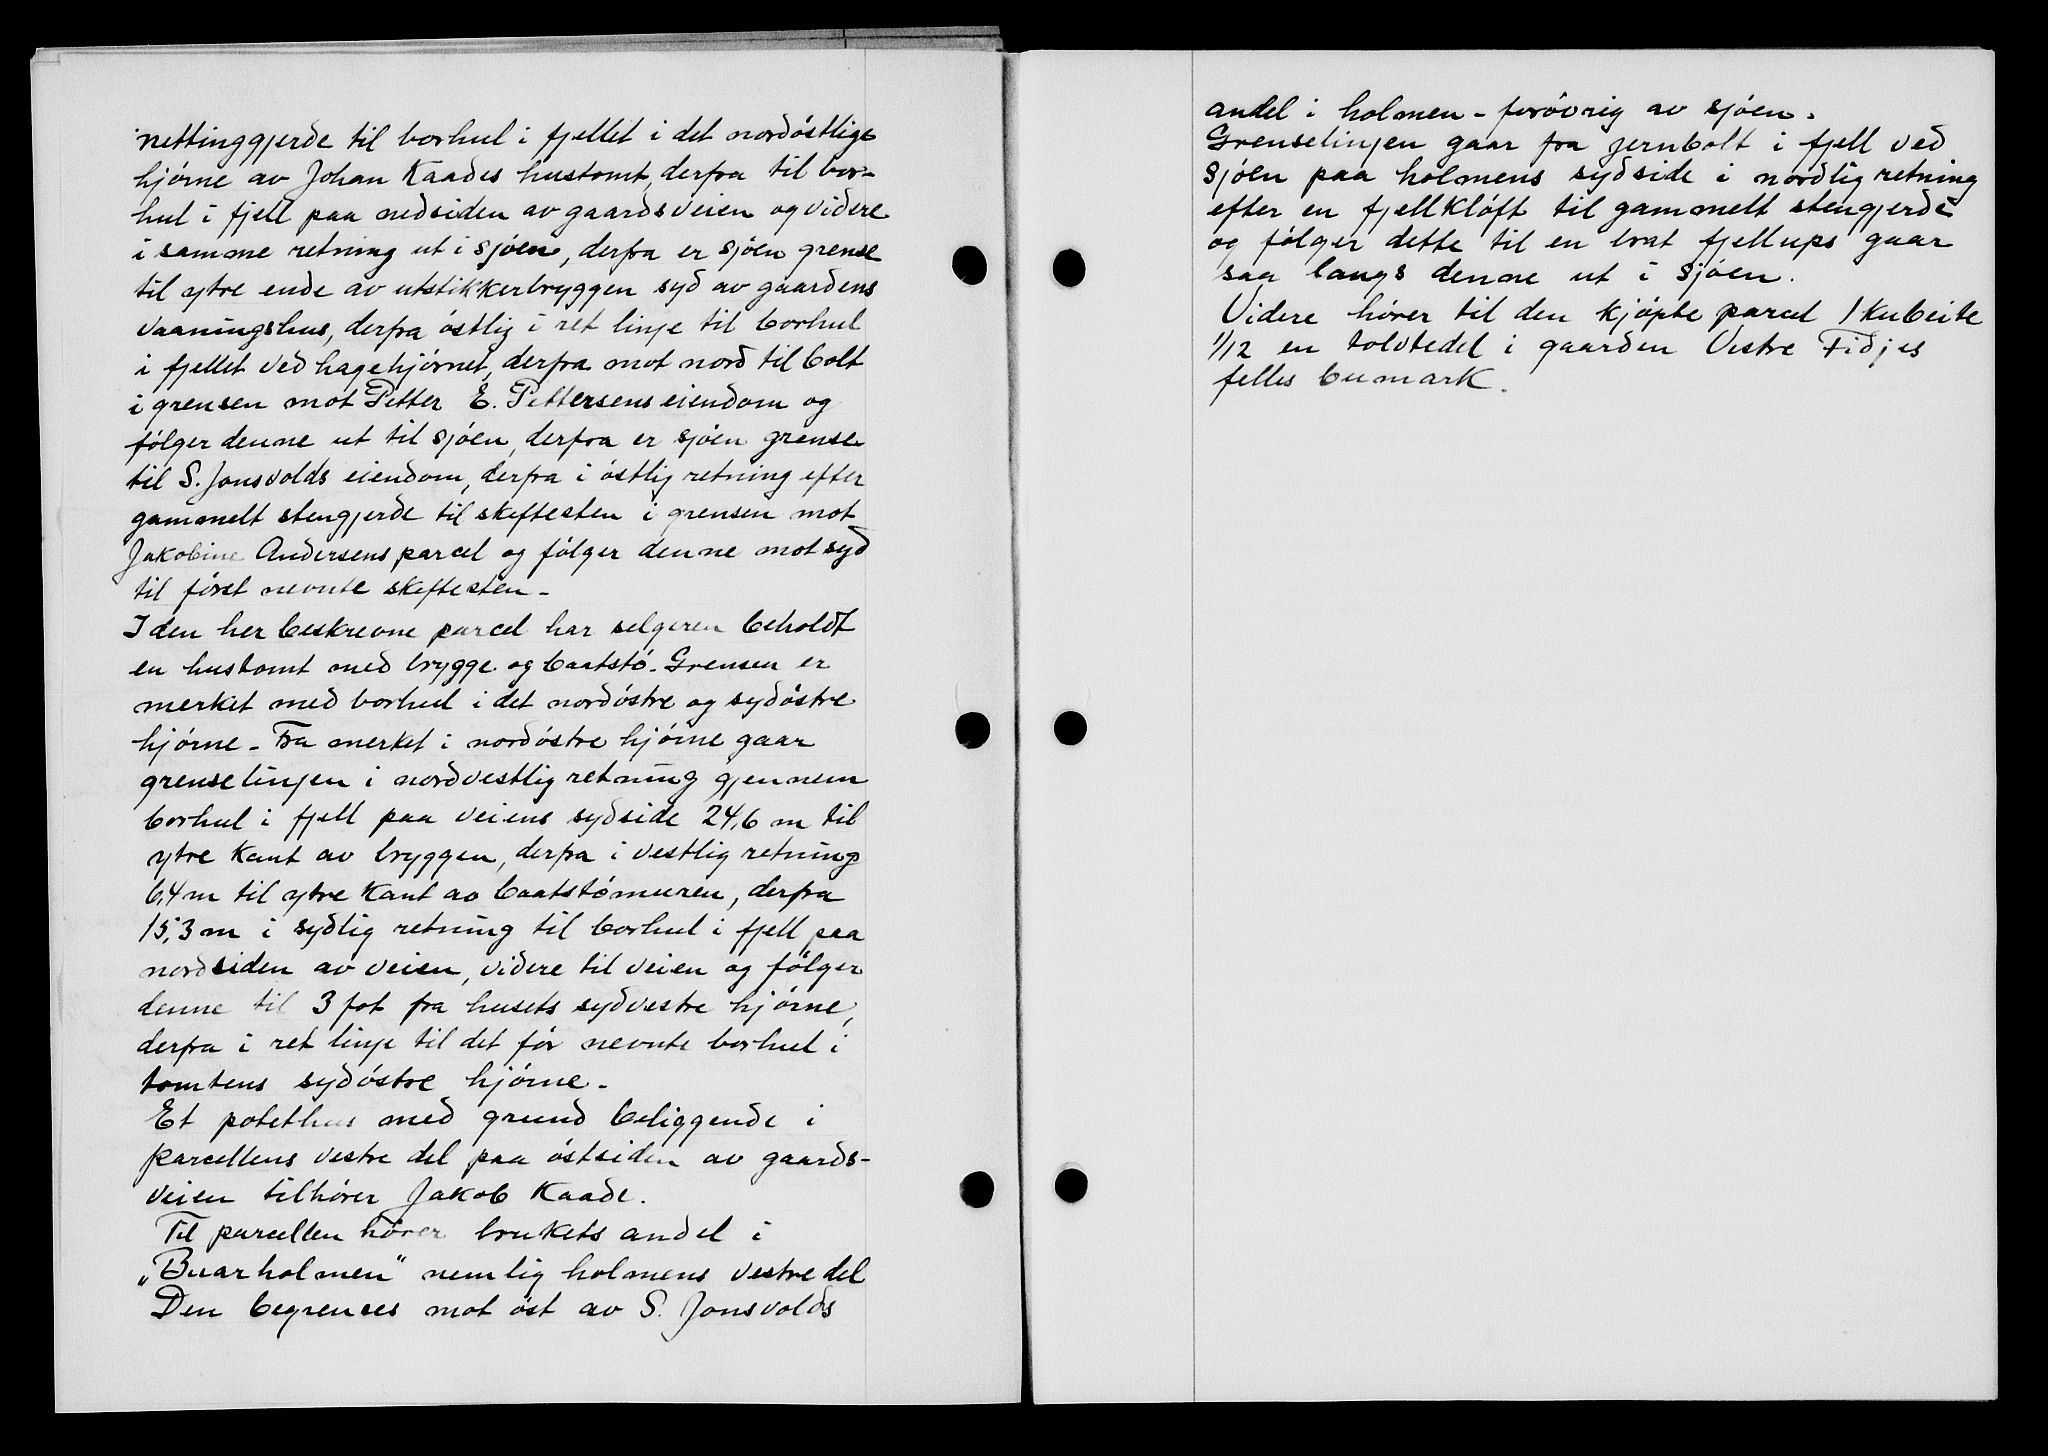 nettinggjerde til borhul i fjellet i det nordöstlige
hjörne av Johan Kaades hustomt, derfra til bor-
hul i fjell paa nedsiden av gaardsveien og videre
i samme retning ut i sjöen, derfra er sjöen grense
til ytre ende av utstikkerbryggen syd av gaardens
vaaningshus, derfra östlig i ret linje til borhul
i fjellet ved hagehjörnet, derfra mot nord til bolt
i grensen mot Petter E. Pettersens eiendom og
fölger denne ut til sjöen, derfra er sjöen grense
til S. Jonsvolds eiendom, derfra i östlig retning efter
gammelt stengjerde til skiftesten i grensen mot
Jakobine Andersens parcel og fölger denne mot syd
til först nevnte skiftesten -
I den her beskrevne parcel har selgeren beholdt
en hustomt med brygge og baatstö. Grensen er
merket med borhul i det nordöstre og sydöstre
hjörne - Fra merket i nordöstre hjörne gaar
grenselinjen i nordvestlig retning gjennem
borhul i fjell paa veiens sydside 24,6 m til
ytre kant av bryggen, derfra i vestlig retning
6,4 m til ytre kant av baatstömuren, derfra
15,3 m i sydlig retning til borhul i fjell paa
nordsiden av veien, videre til veien og fölger
denne til 3 fot fra husets sydvestre hjörne,
derfra i ret linje til det för nevnte borhul i
tomtens sydöstre hjörne -
Et potethus med grund beliggende i
parcellens vestre del paa östsiden av gaards-
veien tilhörer Jakob Kaade.
Til parcellen hörer brukets andel i
„Buarholmen" nemlig holmens vestre del
Den begrenses mot öst av S. Jonsvolds
andel i holmen - forövrig av sjöen.
Grenselinjen gaar fra jernbolt i fjell ved
sjöen paa holmens sydside i nordlig retning
efter en fjellklöft til gammelt stengjerde
og fölger dette til en brat fjellups gaar
saa langs denne ut i sjöen.
Videre hörer til den kjöpte parcel 1 kubeite
1/12 en tolvtedel i gaarden Vestre Fidjes
felles bumark.